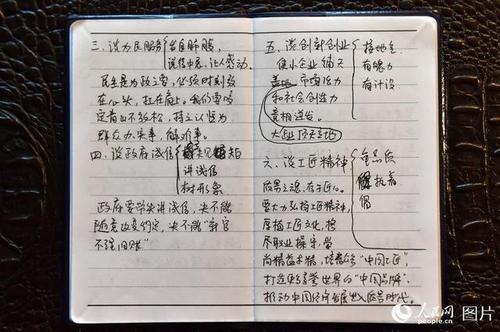 三、谈为民服务
发自肺腑,
诚恳中恳,让人感动。
民生是为政之要,必须时刻放
在心头,扛在肩上。我们要咬
定青山不放松,持之以恒为
群众办实事,解难事。
四、谈政府诚信
讲诚信
树形象
政府要带头讲诚信,决不能
随意改变约定,决不能“新官
不理旧账”
五、谈创新创业
接地气
有魄力
有计谋
使小企业铺天
盖地,市场活力
和社会创造力
竞相迸发。
大企业顶天立地
六、谈工匠精神
重品质
执着
倡
质量之魂,存于匠心。
要大力弘扬工匠精神,
厚植工匠文化,恪
尽职业操守,崇
尚精益求精,培育众多“中国工匠”,
打造更多享誉世界的“中国品牌”,
推动中国经济发展进入质量时代。
人民网 图片
people.cn